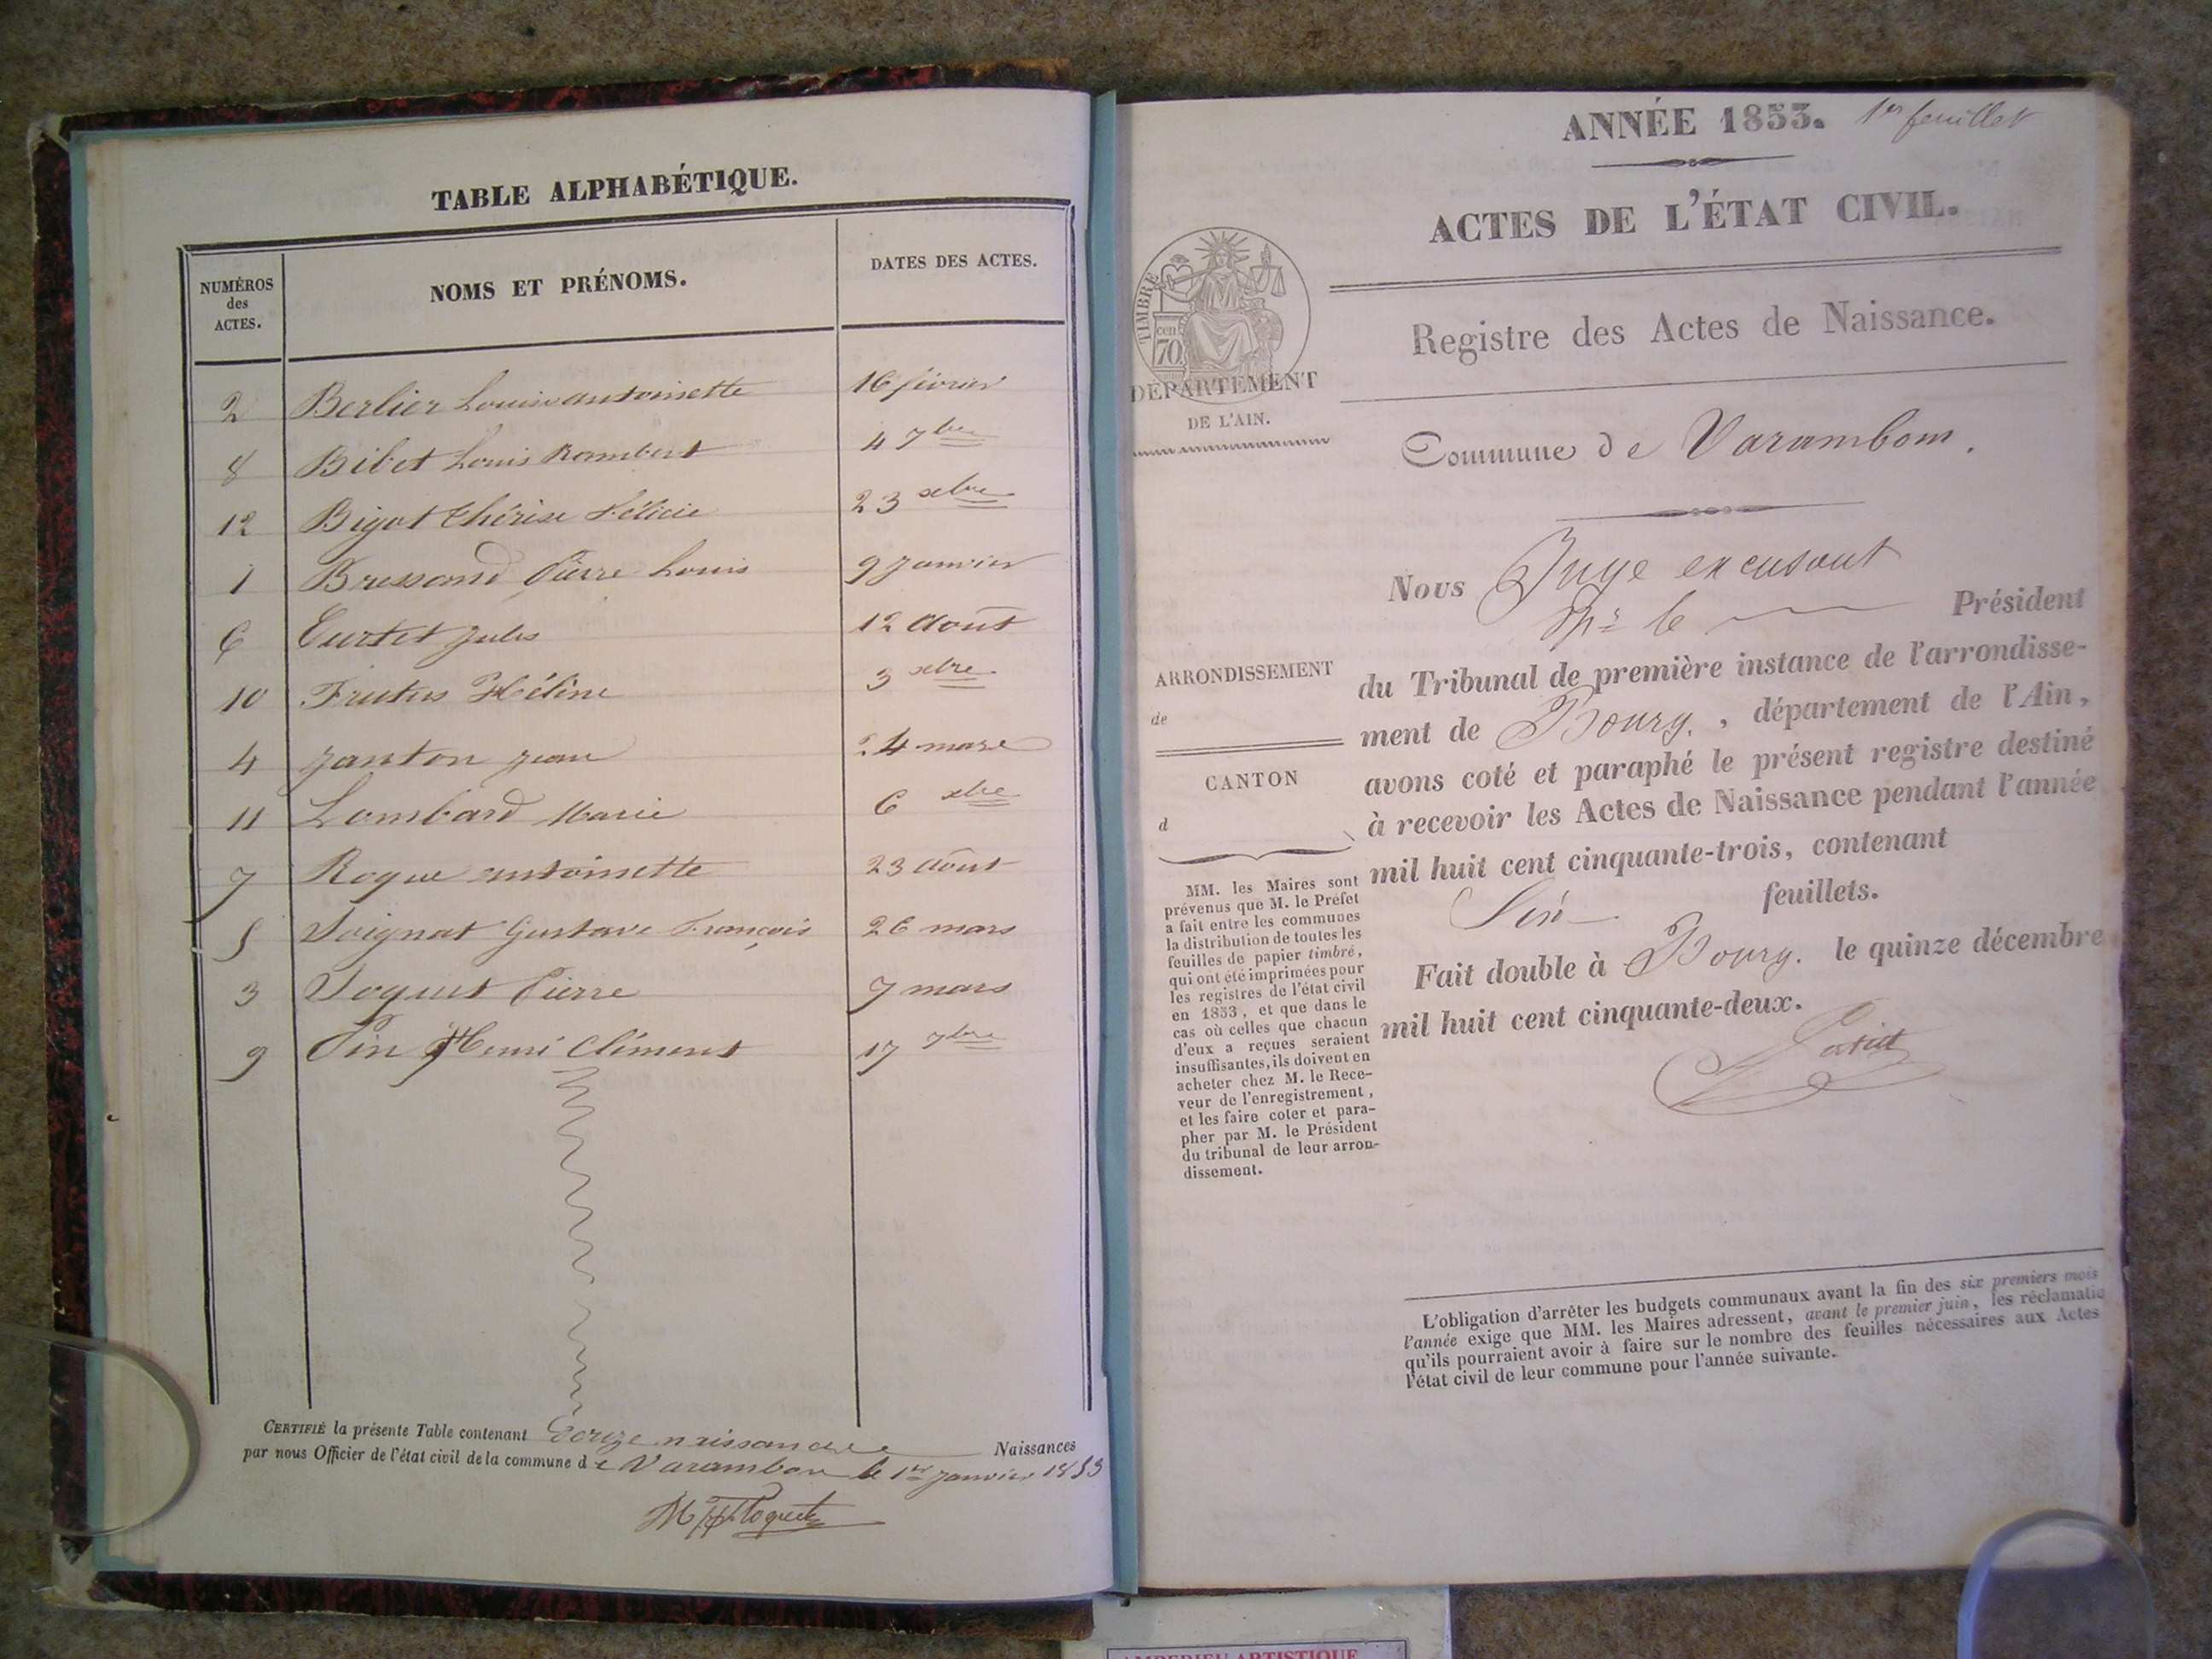 TABLE ALPHABÉTIQUE.
NUMÉROS des ACTES. NOMS ET PRÉNOMS. DATES DES ACTES.
2 Berlier Louise antoinette 16 février
8 Bibet Louis Rambert 4 7bre
12 Bigot thérèse félicie 23 xbre
1 Bressand Pierre Louis 9 Janvier
6 Curtet Jules 12 Août
10 Frutus Hélène 3 xbre
4 Janton Jean 24 mars
11 Lombard Marie 6 xbre
7 Rogue antoinette 23 août
5 Soignat Gustave François 26 mars
3 Soquet Pierre 7 mars
9 Pin Henri Clément 17 7bre
CERTIFIÉ la présente Table contenant naissances Naissances
par nous Officier de l'état civil de la commune de Varambon le 1er Janvier 1853
ANNÉE 1853. 1er feuillet
ACTES DE L'ÉTAT CIVIL.
TIMBRE
cen
70
DÉPARTEMENT
DE L'AIN.
Registre des Actes de Naissance.
Commune de Varambon.
Nous Juge excusant
Mr le Président
du Tribunal de première instance de l'arrondisse-
ment de Bourg, département de l'Ain,
avons coté et paraphé le présent registre destiné
à recevoir les Actes de Naissance pendant l'année
mil huit cent cinquante-trois, contenant
Six feuillets.
Fait double à Bourg. le quinze décembre
mil huit cent cinquante-deux.
ARRONDISSEMENT
de
CANTON
d
MM. les Maires sont
prévenus que M. le Préfet
a fait entre les communes
la distribution de toutes les
feuilles de papier timbré,
qui ont été imprimées pour
les registres de l'état civil
en 1853, et que dans le
cas où celles que chacun
d'eux a reçues seraient
insuffisantes, ils doivent en
acheter chez M. le Rece-
veur de l'enregistrement,
et les faire coter et para-
pher par M. le Président
du tribunal de leur arron-
dissement.
L'obligation d'arrêter les budgets communaux avant la fin des six premiers mois
l'année exige que MM. les Maires adressent, avant le premier juin, les réclamatio
qu'ils pourraient avoir à faire sur le nombre des feuilles nécessaires aux Actes
l'état civil de leur commune pour l'année suivante.
AMBERIEU ARTISTIQUE